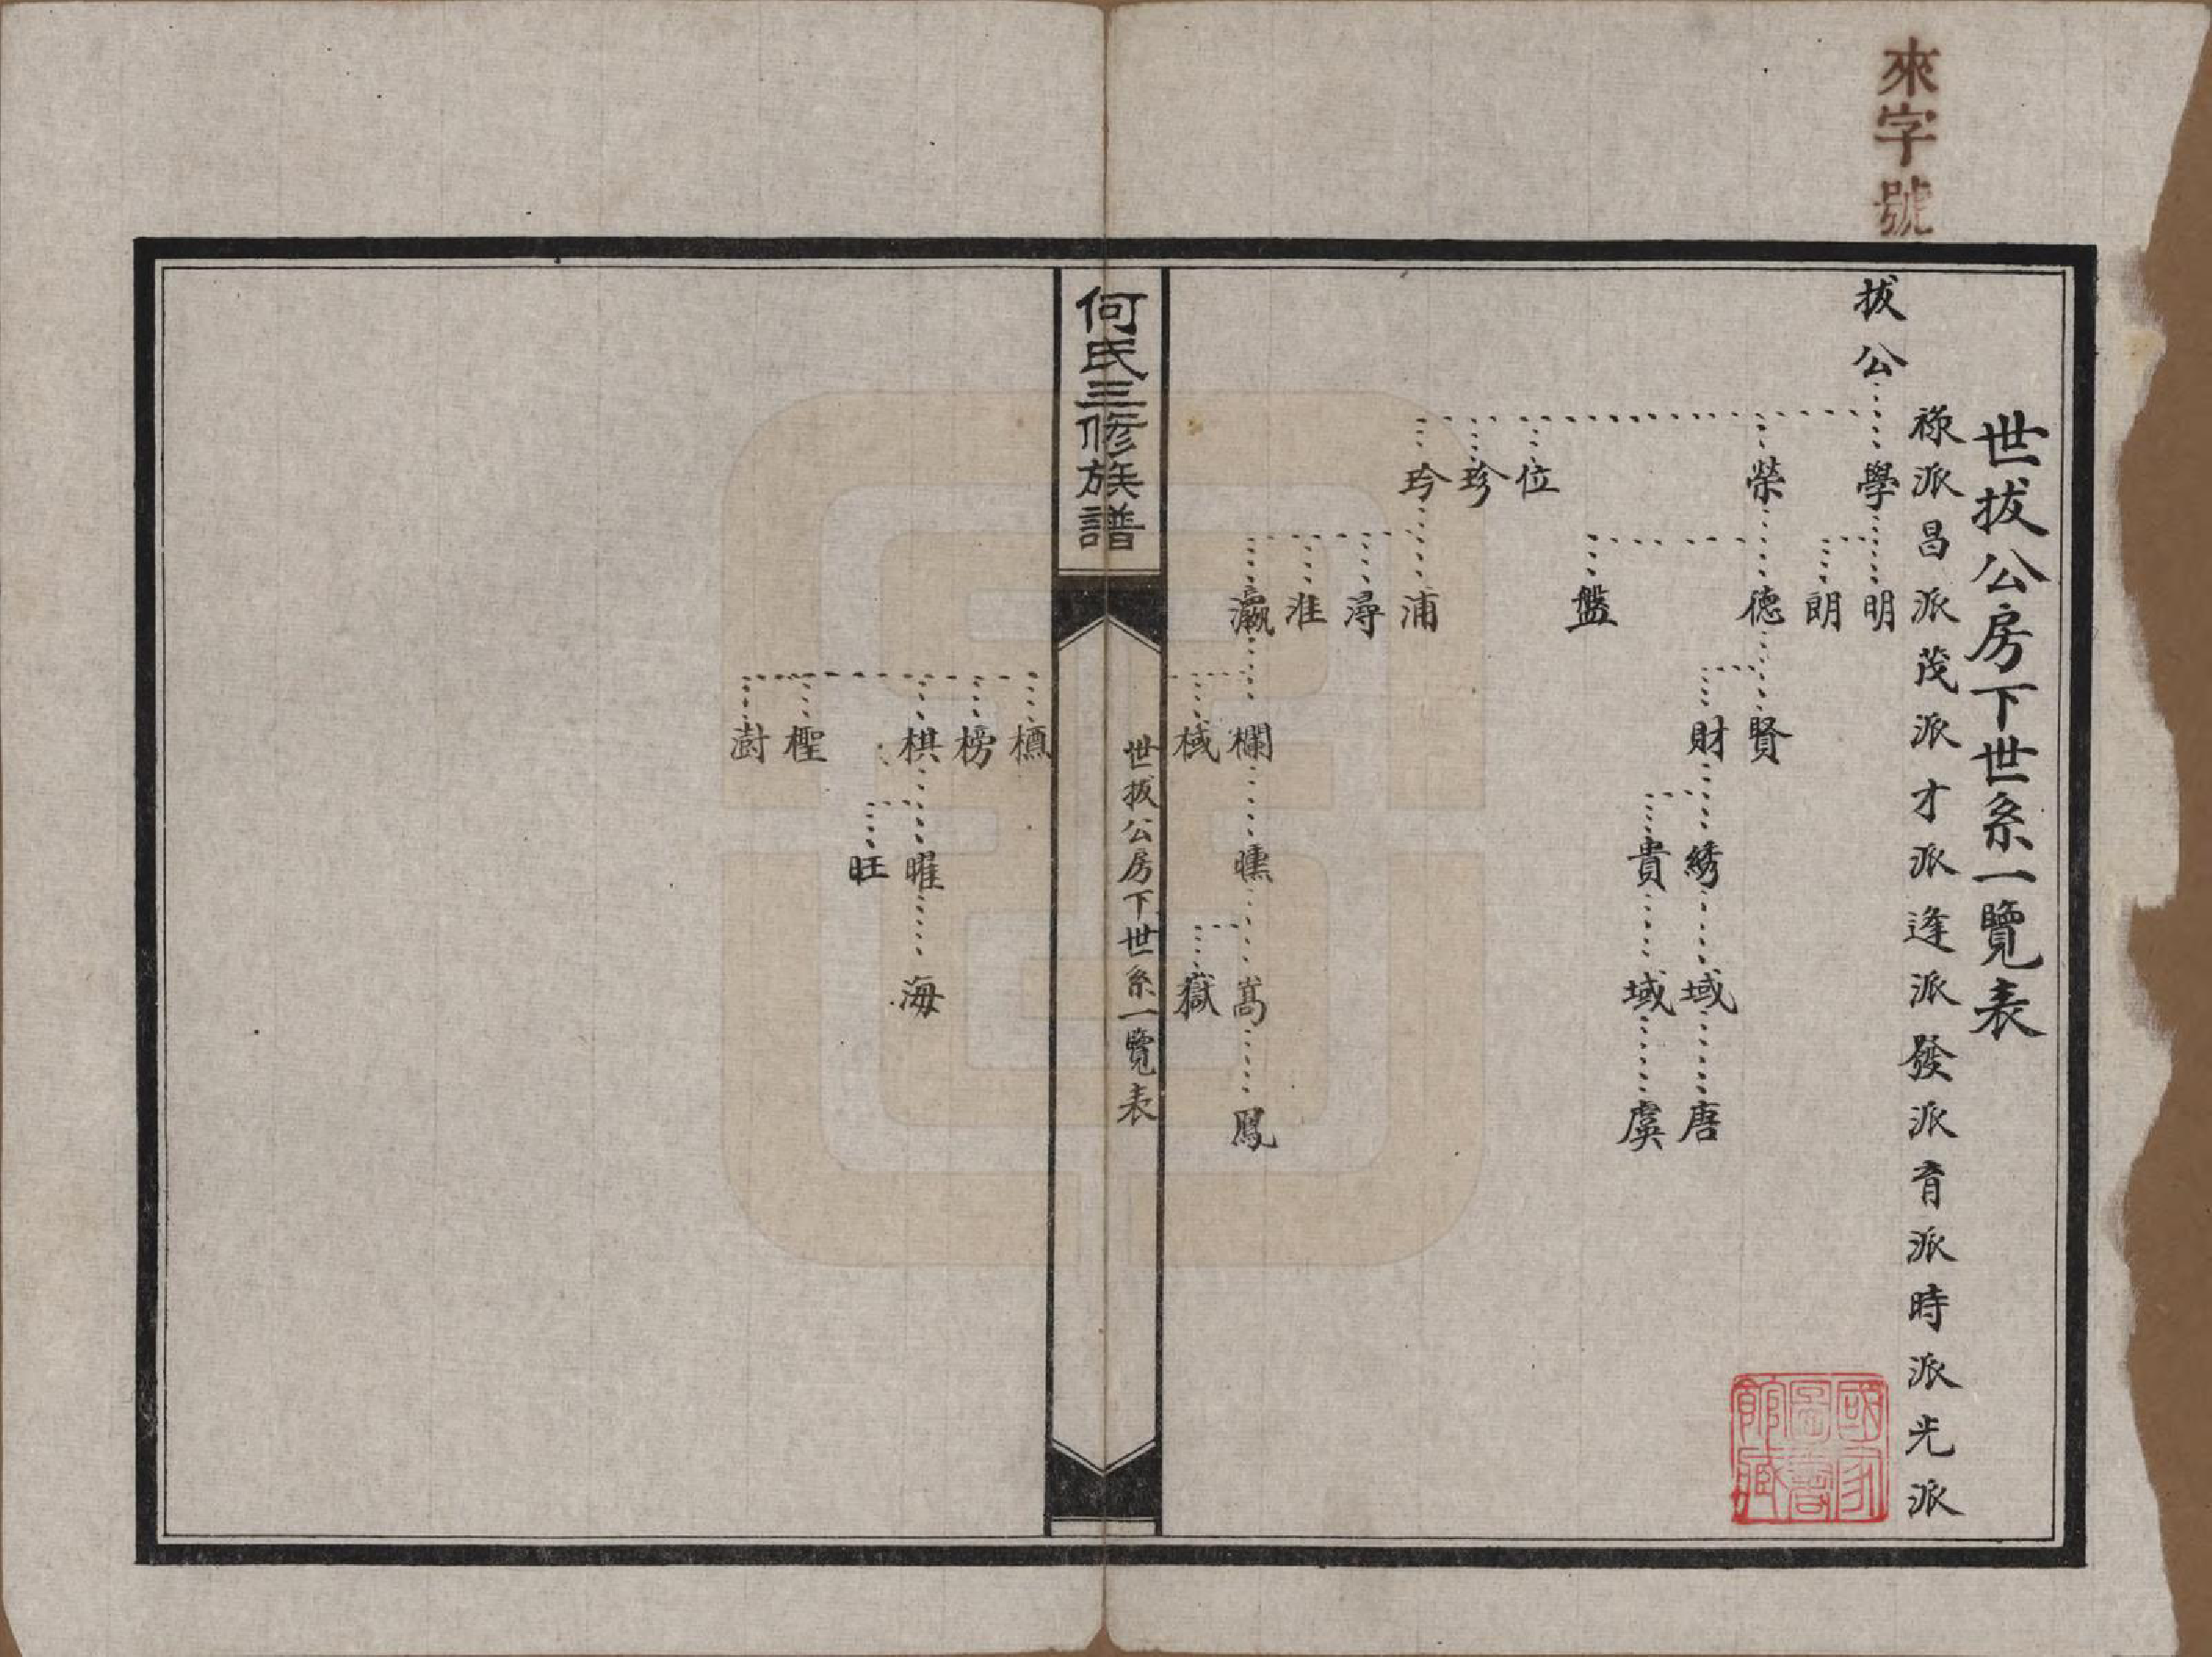 來字號
世拔公房下世系一覽表
祿派昌派茂派才派逢派發派育派時派光派
拔公
學 榮 位 珍 玲
明 朗 德 盤 浦 潯 淮 瀛
賢 財 欄 棫
綉 貴 曛
域 域 嵩 嶽
唐 虞 鳳
何氏三修族譜
世拔公房下世系一覽表
榜 棋 檉 澍
暄 旺
海
國家圖書館藏